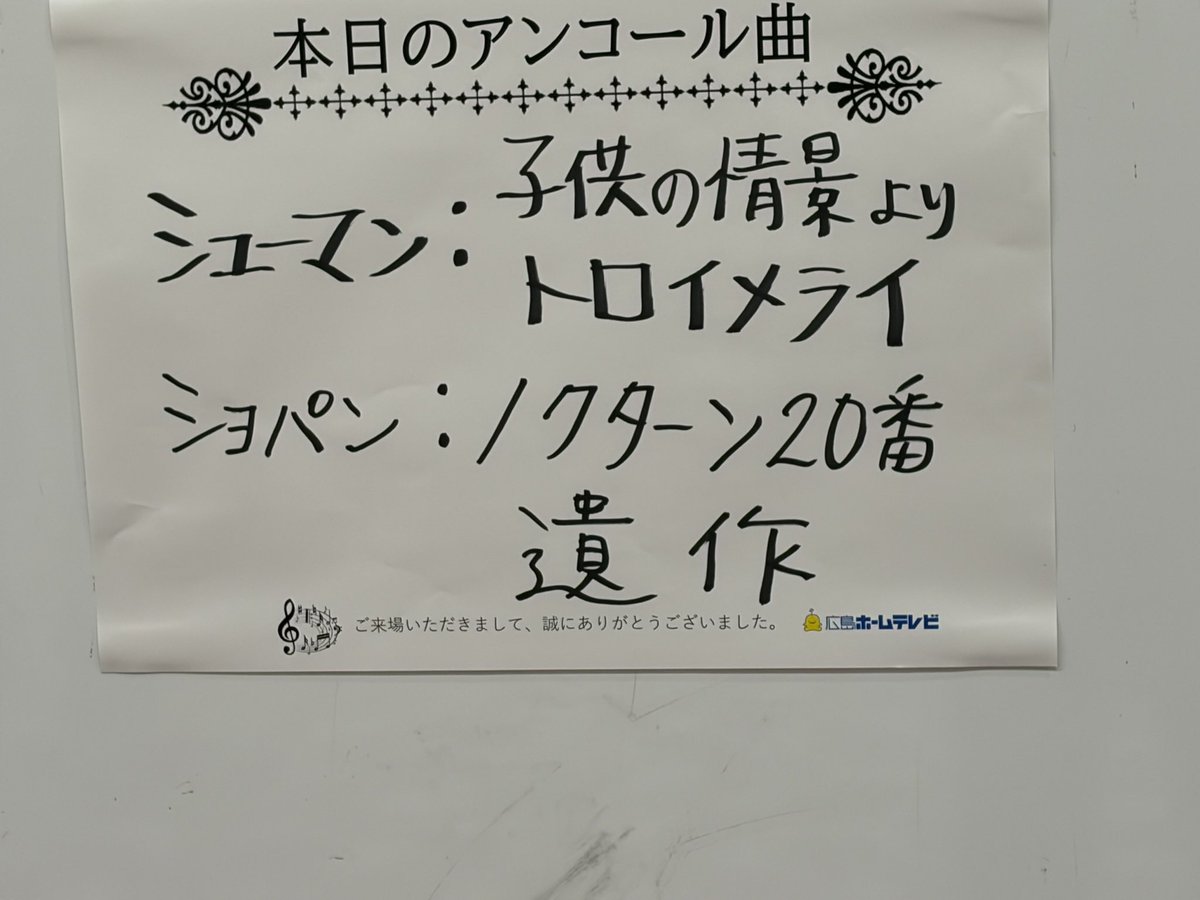 本日のアンコール曲
シューマン：子供の情景より
トロイメライ
ショパン：ノクターン20番
遺作
ご来場いただきまして、誠にありがとうございました。
広島ホームテレビ